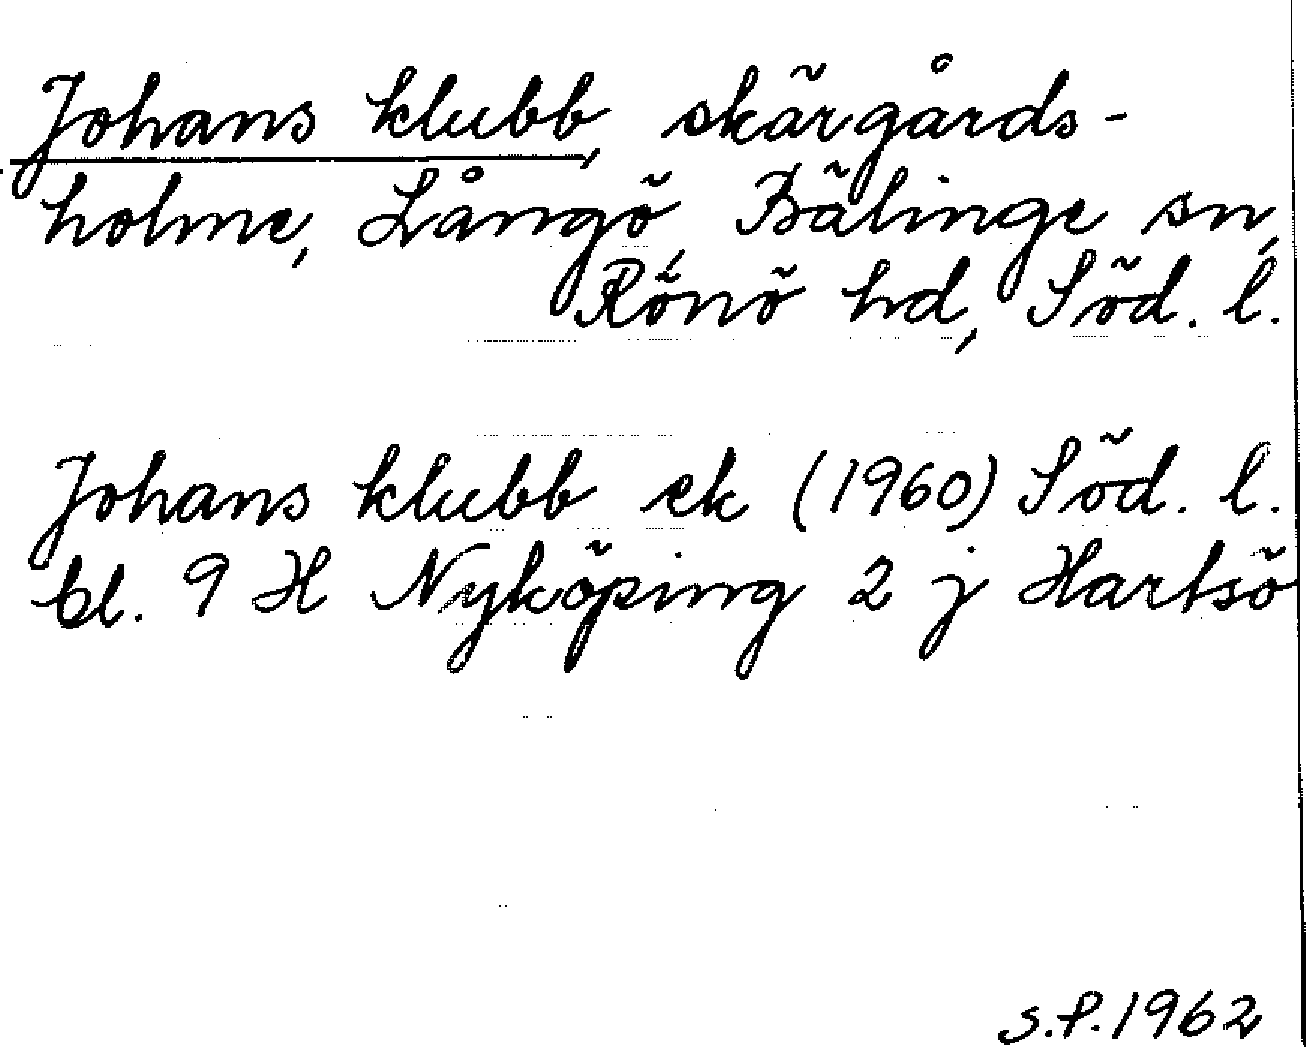 Johans klubb, skärgårds-
holme, Långö, Bälinge sn,
Rönö hd, Söd. l.
Johans klubb ek (1960) Söd. l.
bl. 9 H Nyköping 2 j Hartsö
S.P. 1962